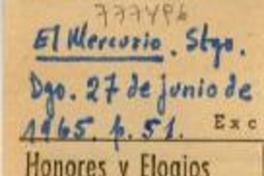 777496
El Mercurio. Stgo.
Dgo. 27 de junio de
1965. p. 51.
Exc
Honores y Elogios